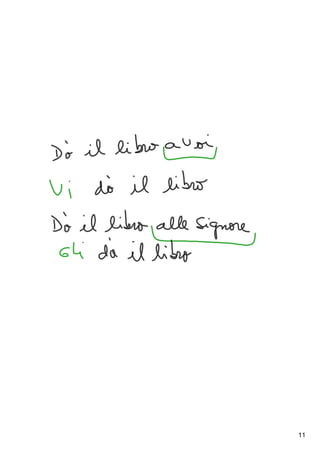 Dò il libro a voi
Vi dò il libro
Dò il libro alle signore
Gli dò il libro
11